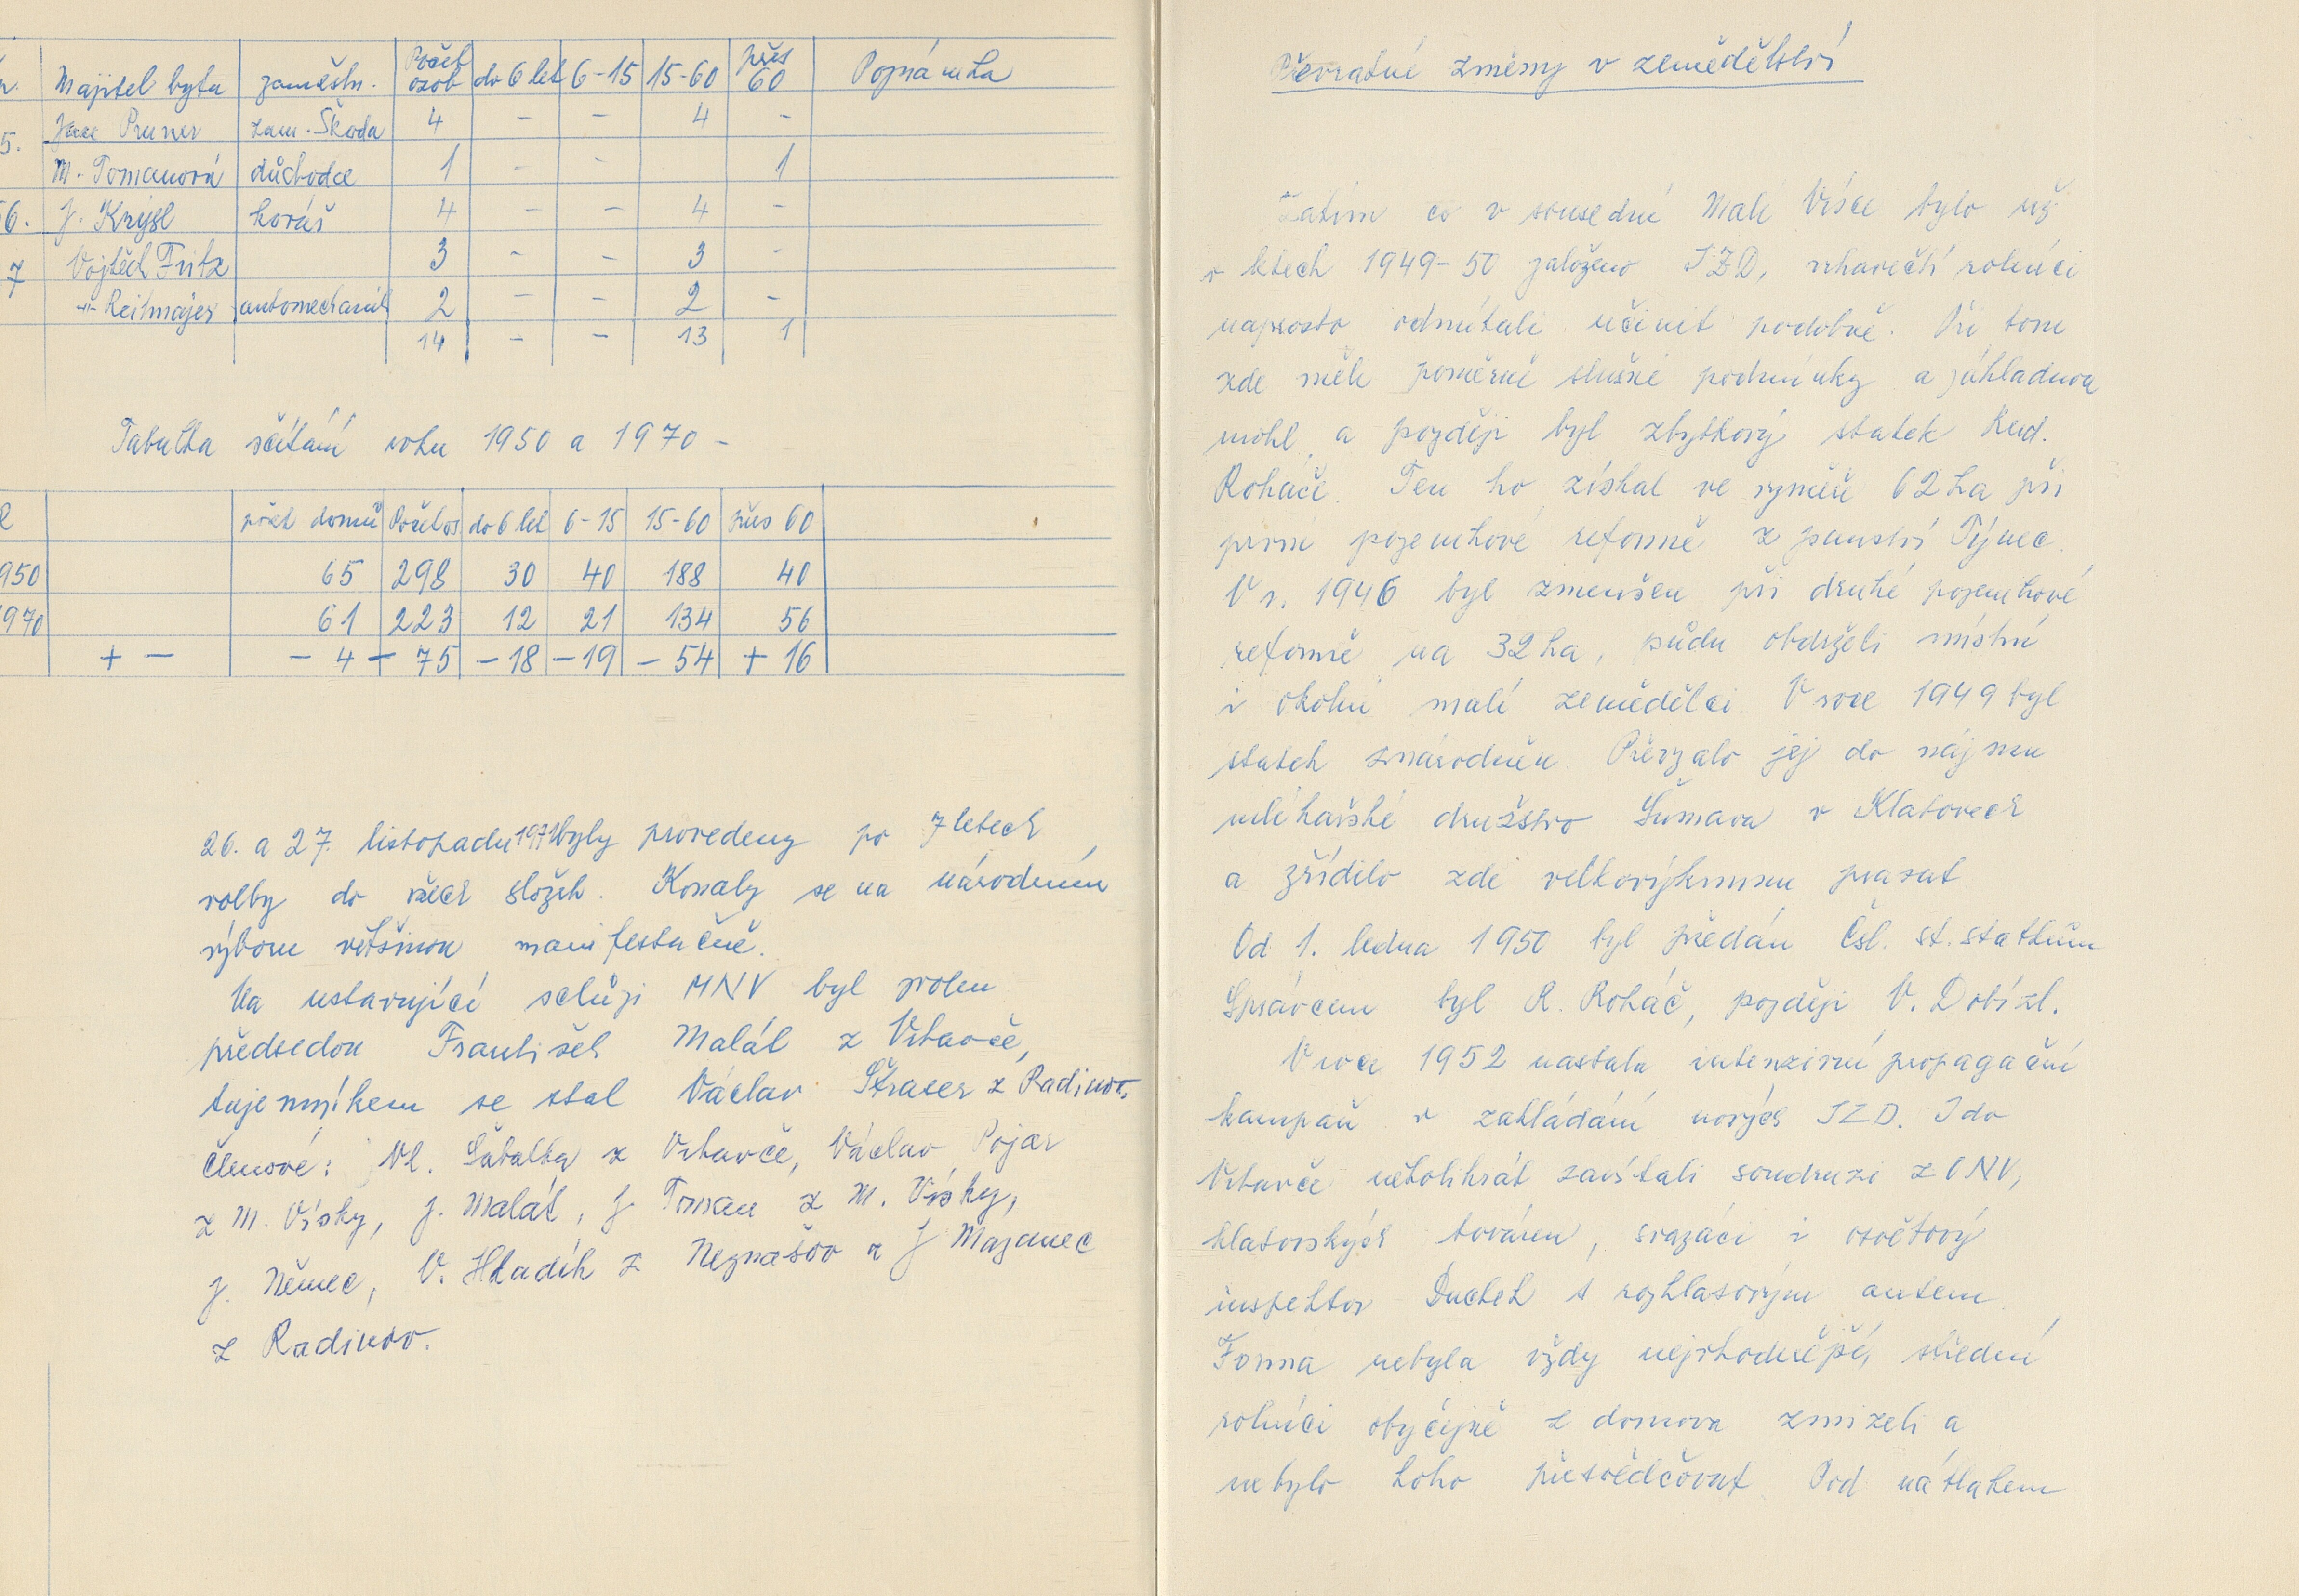 Majitel bytu zaměstn. Počet osob do 6 let 6-15 15-60 přes 60 Poznámka
5. Pruner zam. Škoda 4 - - 4 -
M. Tomanová důchodce 1 - - 1
6. J. Krýsl kováš 4 - - 4 -
7 Vojtěch Fritz 3 - - 3 -
-"- Reitmajer automechanik 2 - - 2 -
14 - - 13 1
Tabulka sčítání roku 1950 a 1970 -
počet domů Počet os do 6 let 6-15 15-60 přes 60
950 65 298 30 40 188 40
1970 61 223 12 21 134 56
+ - - 4 - 75 - 18 - 19 - 54 + 16
26. a 27. listopadu 1971 byly provedeny po 7 letech
volby do všech složek. Konaly se na národním
výboru většinou manifestačně.
Na ustavující schůzi MNV byl zvolen
předsedou František Malát z Vrhavče,
tajemníkem se stal Václav Straser z Radinov,
členové: Vl. Šatalka z Vrhavče, Václav Pojar
z M. Vísky, J. Malát, J. Toman z M. Vísky,
J. Němec, V. Hladík z Neznašov a J Mazanec
z Radinov.
Převratné změny v zemědělství
Zatím co v sousední Malé Vísce bylo už
v letech 1949-50 založeno JZD, vrhavečtí rolníci
naprosto odmítali učinit podobně. Při tom
zde měli poměrně slušné podmínky a základnou
mohl a později byl zbytkový statek Rud.
Roháče. Ten ho získal ve výměře 62 ha při
prvn pozemkové reformě z panství Týnec.
V r. 1946 byl zmenšen při druhé pozemkové
reformě na 32 ha, půdu obdrželi místní
i okolní malí zemědělci. V roce 1949 byl
statek znárodněn. Převzalo jej do nájmu
mlékařské družstvo Šumava v Klatovech
a zřídilo zde velkovýkrmnu prasat.
Od 1. ledna 1950 byl předán Čsl. st. statkům
Správcem byl R. Roháč, později V. Dobízl.
V roce 1952 nastala intenzivní propagační
kampaň v zakládání nových JZD. I do
Vrhavče několikrát zavítali soudruzi z ONV,
klatovských továren, svazáci i osvětový
inspektor Duchek s rozhlasovým autem.
Forma nebyla vždy nejvhodnější, střední
rolníci obyčejně z domova zmizeli a
nebylo koho přesvědčovat. Pod nátlakem